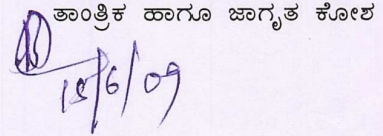 ತಾಂತ್ರಿಕ ಹಾಗೂ ಜಾಗೃತ ಕೋಶ
15/6/09